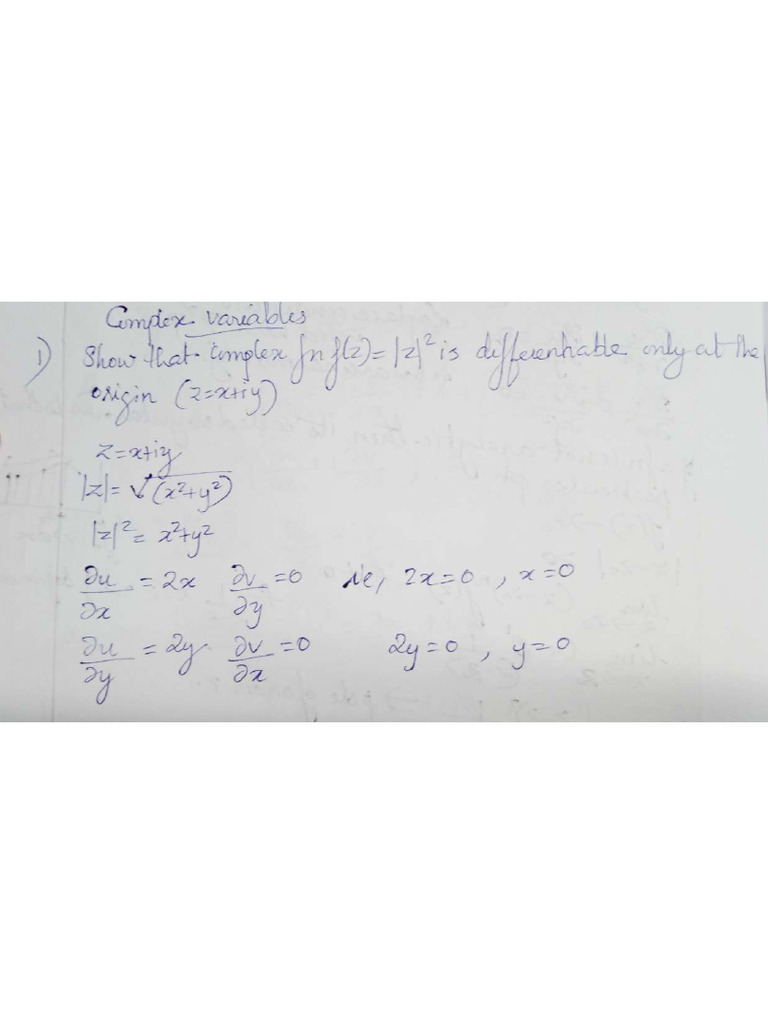 Complex variables
1) Show that complex fn f(z) = |z|² is differentiable only at the
origin (z=x+iy)
z = x+iy
|z| = √(x²+y²)
|z|² = x²+y²
∂u/∂x = 2x ∂v/∂y = 0 ie, 2x=0 , x=0
∂u/∂y = 2y ∂v/∂x = 0 2y=0 , y=0